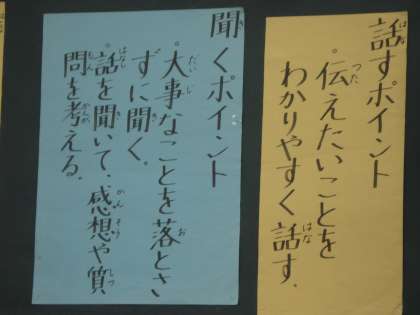 話すポイント
。伝えたいことを
わかりやすく話す.
聞くポイント
。大事なことを落とさ
ずに聞く.
。話を聞いて.感想や質
問を考える.